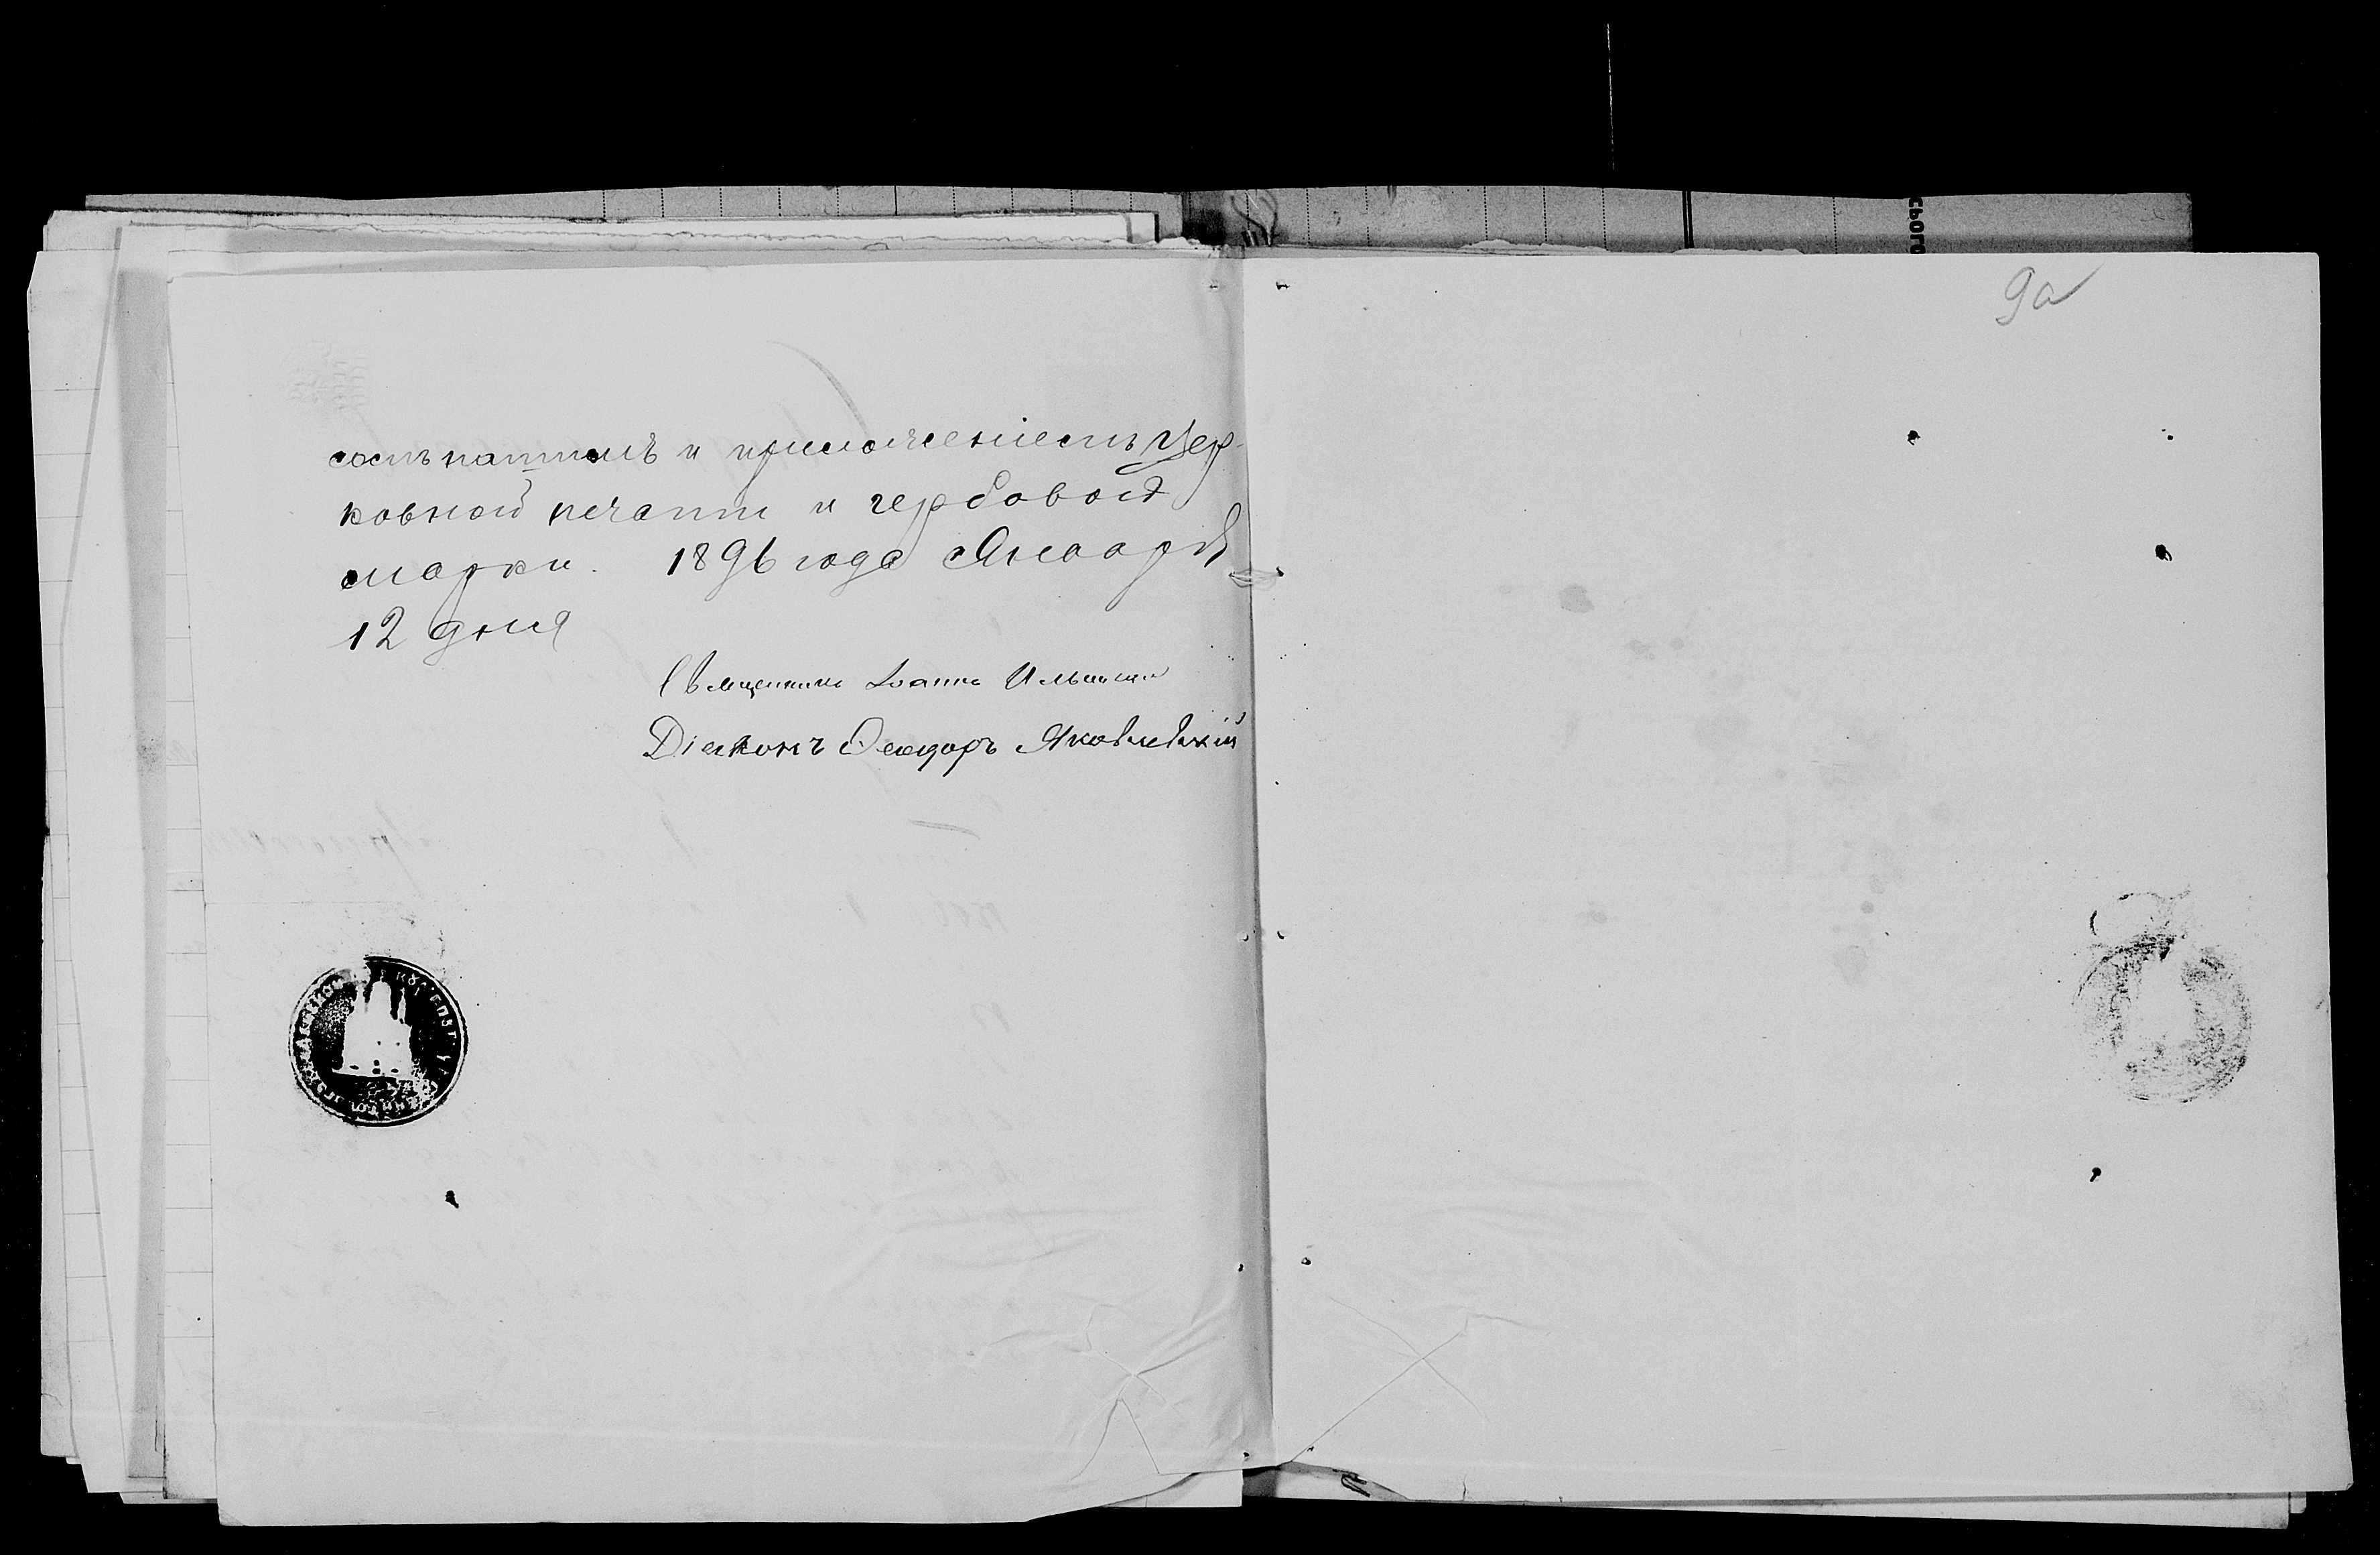 9а
и приложеніемъ цер-
ковной печати и гербовой
марки. 1896 года Января
12 дня
Священникъ Іоаннъ Ильинскій
Діаконъ Ѳеодоръ Яковлевскій